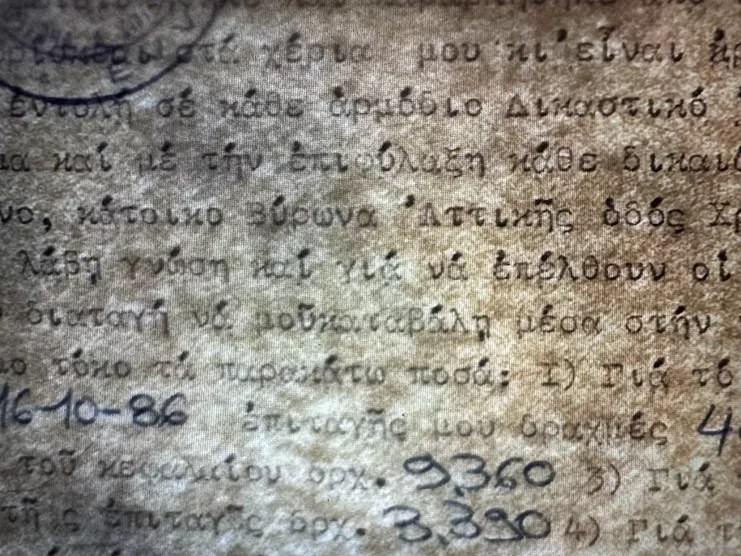 στά χέρια μου κι' εἶναι
ἐντολή σέ κάθε ἁρμόδιο Δικαστικό
καί μέ τήν ἐπιφύλαξη κάθε
κάτοικο Βύρωνα Ἀττικῆς ὁδός
λάβη γνώση καί γιά νά ἐπέλθουν οἱ
διαταγή νά μοῦκαταβάλη μέσα στήν
τόκο τά παρακάτω ποσά: 1) Γιά τό
16-10-86 ἐπιταγῆς μου δραχμές
τοῦ κεφαλαίου δρχ. 9.360 3) Γιά
τῆς ἐπιταγῆς δρχ. 3.390 4) Γιά